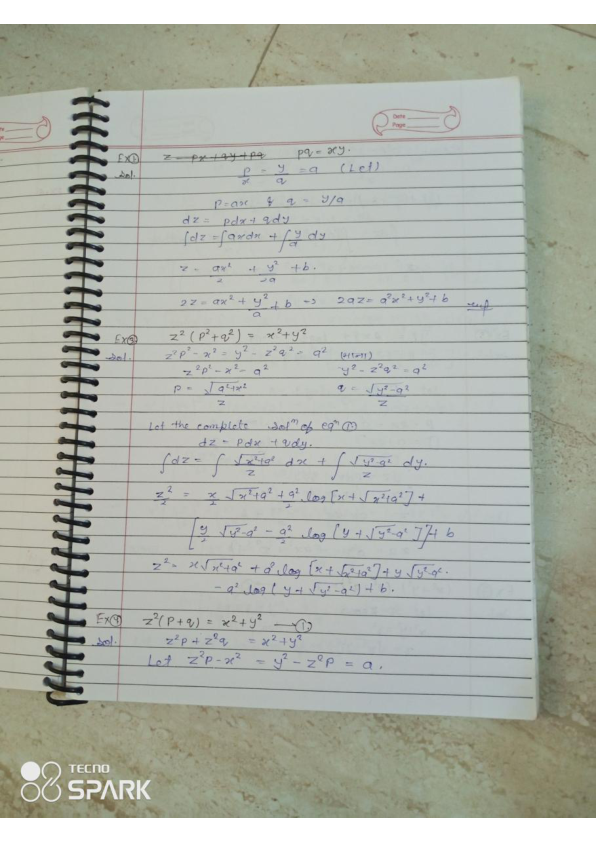 Date
Page
Ex② z = px + qy + pq pq = xy.
Sol. p/x = y/q = a (Let)
p = ax & q = y/a
dz = pdx + qdy
∫dz = ∫axdx + ∫y/a dy
z = ax²/2 + y²/2a + b.
2z = ax² + y²/a + b ⇒ 2az = a²x² + y² + b
z²(p²+q²) = x²+y²
Sol. z²p² - x² = y² - z²q² = a² (माना)
z²p² - x² = a² y² - z²q² = a²
p = √(a²+x²)/z q = √(y²-a²)/z
Let the complete solⁿ of eqⁿ ①
dz = pdx + qdy.
∫dz = ∫ √(x²+a²)/z dx + ∫ √(y²-a²)/z dy.
z²/2 = x/2 √(x²+a²) + a²/2 log[x+√(x²+a²)] +
[y/2 √(y²-a²) - a²/2 log[y+√(y²-a²)]] + b
z² = x√(x²+a²) + a² log[x+√(x²+a²)] + y√(y²-a²)
- a² log(y+√(y²-a²) + b.
Ex④ z²(p+q) = x²+y² —①
Sol. z²p + z²q = x²+y²
Let z²p - x² = y² - z²p = a.
TECNO
SPARK